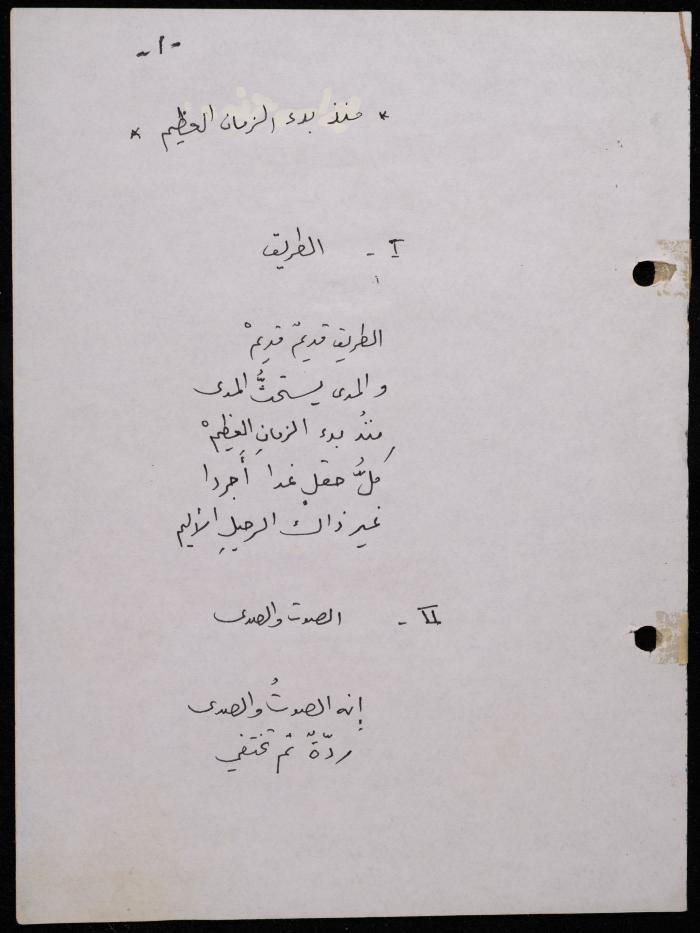 -أ-
* منذ بدء الزمان العظيم *
I - الطريق
الطريق قديمٌ قديمْ
والمدى يستحثُّ المدى
منذُ بدء الزمانِ العظيمْ
كلُّ حقلٍ غدا أَجردا
غير ذاك الرحيلِ الأليم
II - الصوت والصدى
إنه الصوتُ والصدى
ردّةٌ ثم تختفي